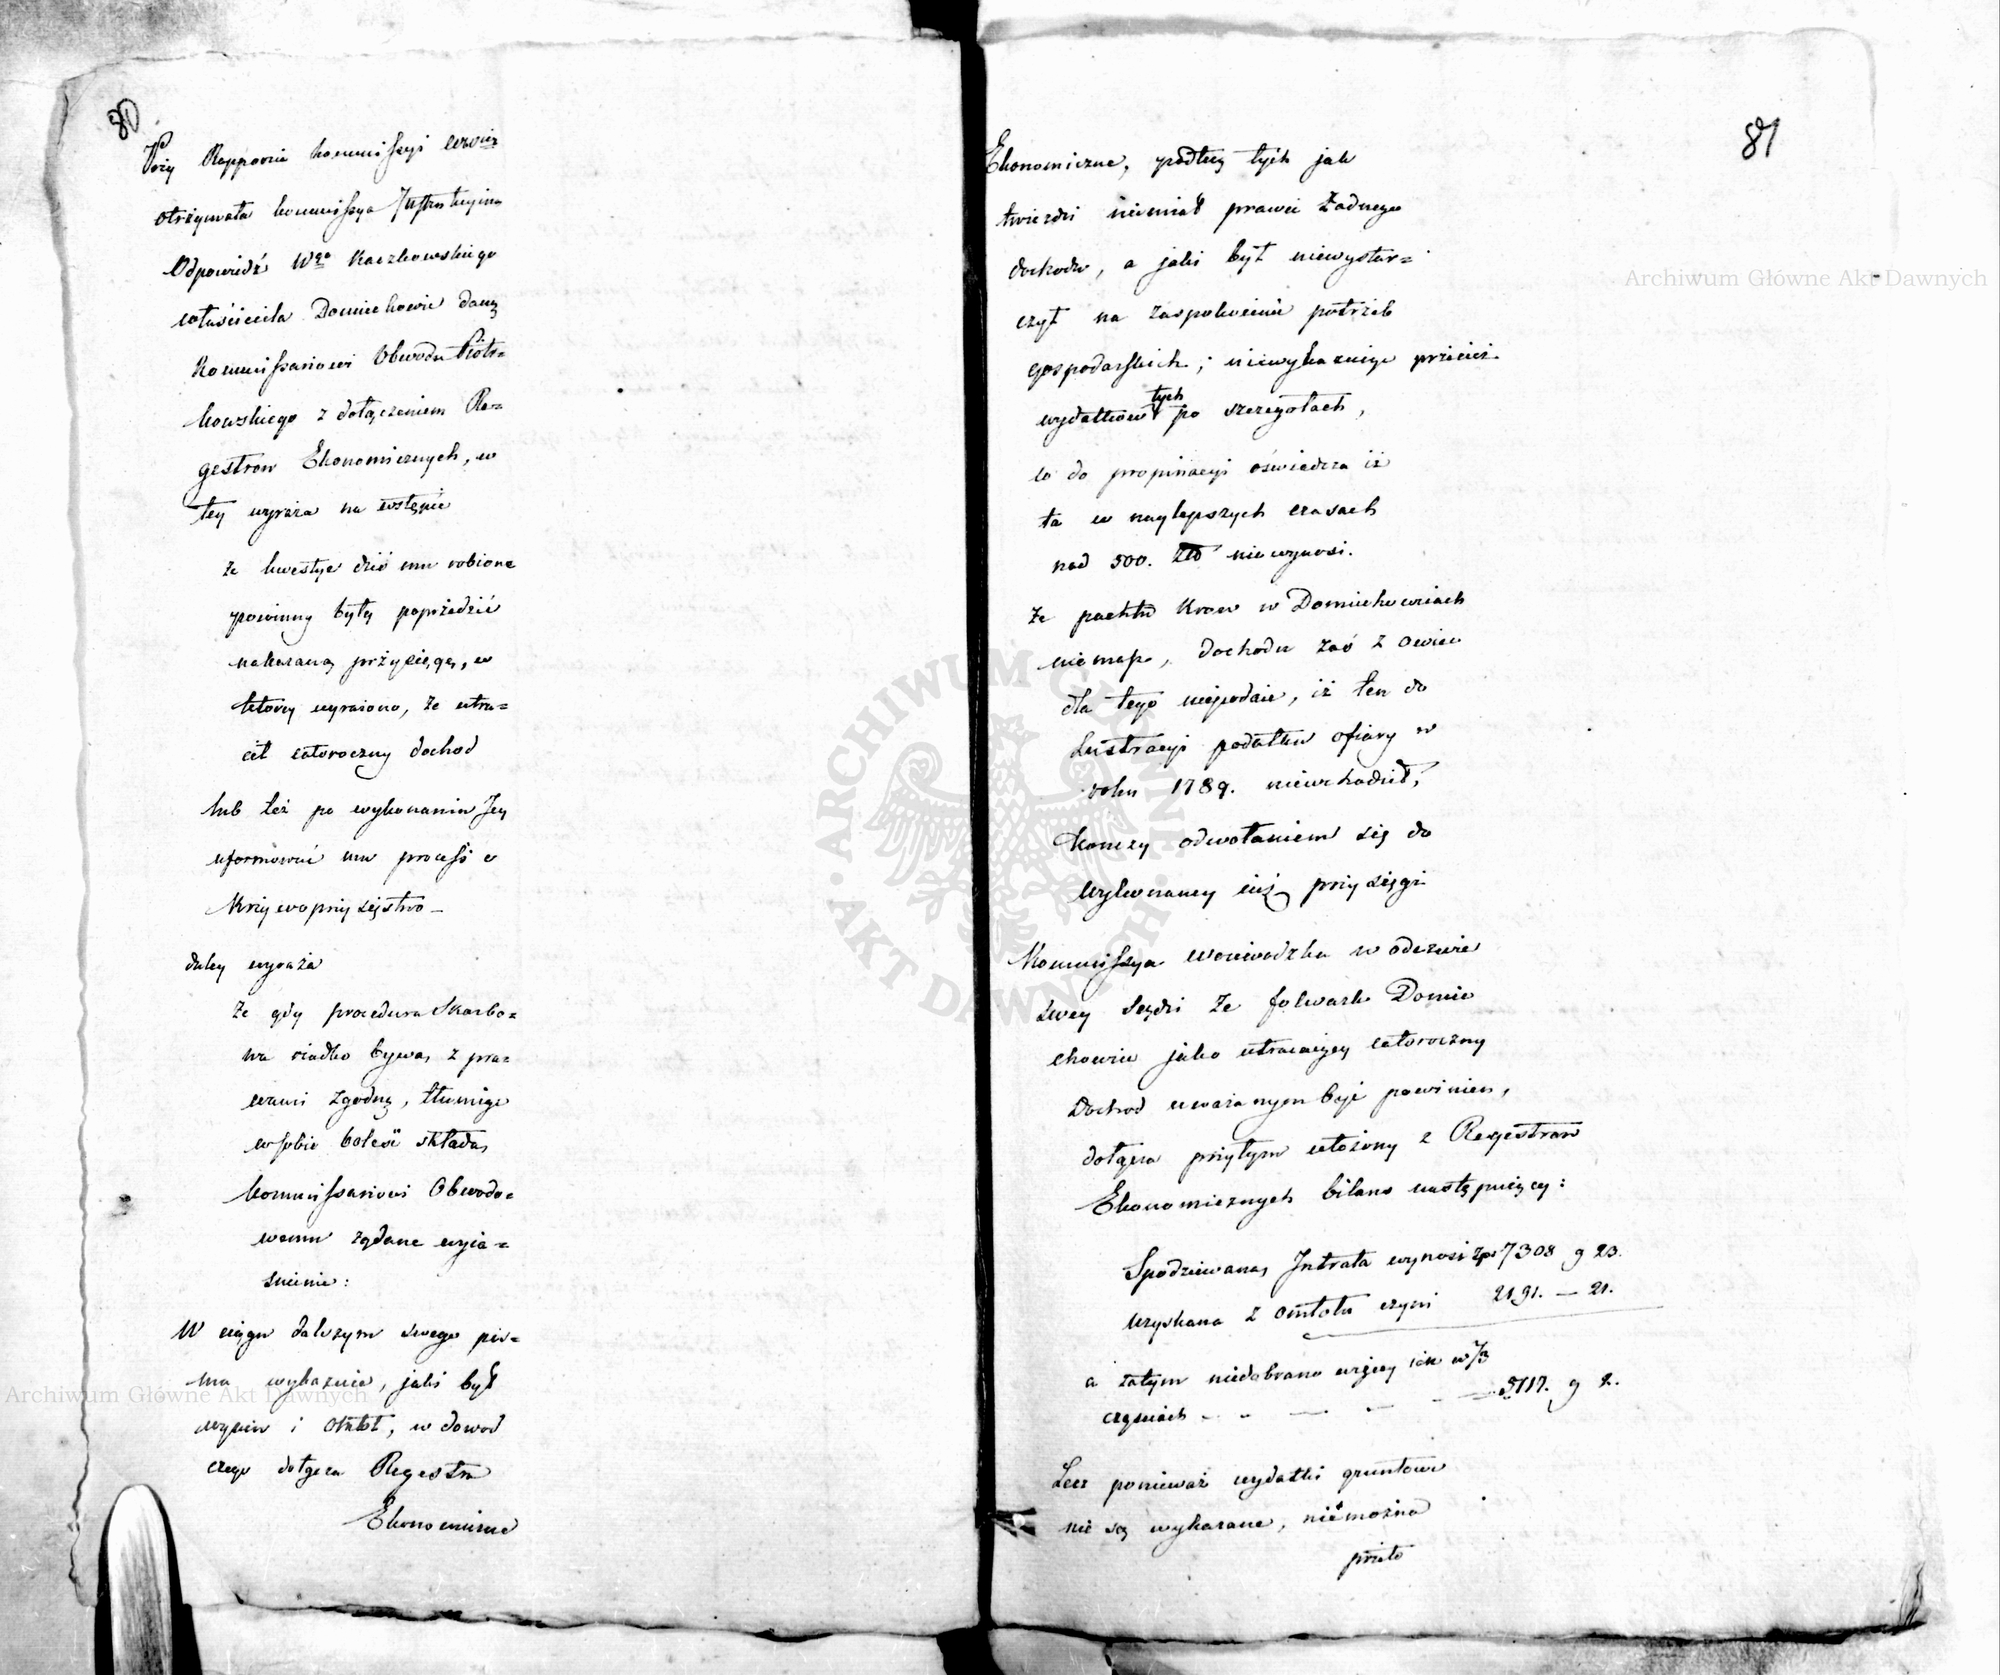 80
Przy Rapporcie kommissyi Woiew.
otrzymała kommissya
Odpowiedź Wgo Kaczkowskiego
właściciela Domiechowic daną
Kommissarzowi Obwodu Piotr=
kowskiego z dołączeniem Re=
gestrow Ekonomicznych, w
tey wyraża na wstępie
że kwestye dziś mu robione
powinny były poprzedzić
nakazaną przysięgę, w
ktorey wyrażono, że utra=
cił całoroczny dochod
lub też po wykonaniu Jey
uformować mu process o
Krzywoprzysięstwo —
daley wyraża
że gdy procedura Skarbo=
wa rzadko bywa z pra=
wami zgodną, tłumiąc
w sobie boleść składa
kommissarzowi Obwodo=
wemu żądane wyia=
śnienie:
W ciągu dalszym swego pis=
ma wykazuie, jaki był
wysiew i omłot, w dowod
czego dołącza Regestra
Ekonomiczne
81
Ekonomiczne, podług tych jak
twierdzi niemiał prawie żadnego
dochodu, a jaki był niewystar=
czył na zaspokoienie potrzeb
gospodarskich; niewykazuiąc przecież
wydatkow tych po szczegołach,
co do propinacyi oświadcza iż
ta w naylepszych czasach
nad 500. Zło niewynosi.
że pachtu Krow w Domiechowicach
niemasz, dochodu zaś z owiec
dla tego niepodaie, iż ten do
Lustracyi podatku ofiary w
roku 1789. niewchodził,
Kończy odwołaniem się do
wykonaney iuż przysięgi
Kommissya Woiewodzka w odezwie
swey sądzi że folwark Domie
chowice jako utracaiący całoroczny
Dochod uważanym być powinien,
dołącza przytym ułożony z Regestrow
Ekonomicznych bilans następuiący:
Spodziewana Intrata wynosi zp 7308 g 23.
uzyskana z omłotu czyni 2191. — 21.
a zatym niedobrano więcey jak w 2/3
częściach — — — — 5117. g 2.
Lecz ponieważ wydatki gruntowe
nie są wykazane, niemożna
przeto
Archiwum Główne Akt Dawnych
Archiwum Główne Akt Dawnych
ARCHIWUM GŁÓWNE AKT DAWNYCH